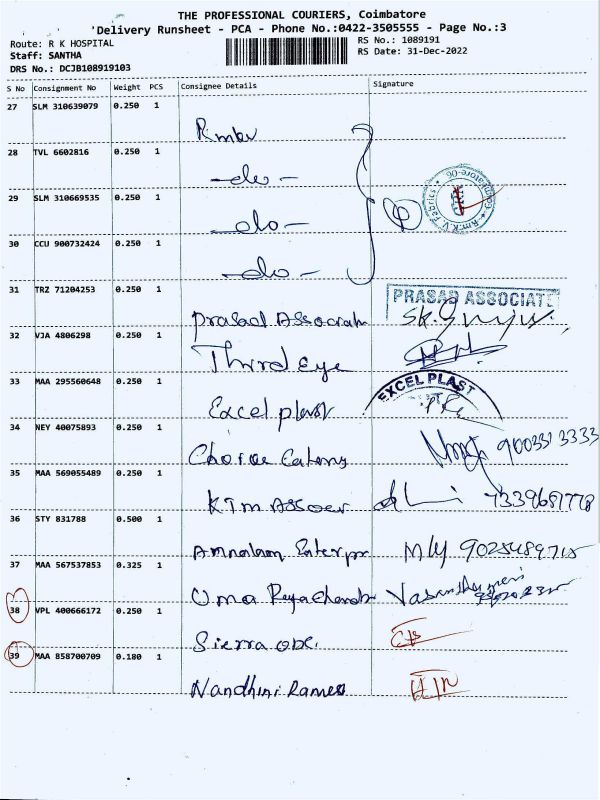 THE PROFESSIONAL COURIERS, Coimbatore
Delivery Runsheet - PCA - Phone No.:0422-3505555 - Page No.:3
Route: R K HOSPITAL
RS No.: 1089191
Staff: SANTHA
RS Date: 31-Dec-2022
DRS No.: DCJB108919103
S No Consignment No Weight PCS Consignee Details Signature
27 SLM 310639079 0.250 1
Rmkv
28 TVL 6602816 0.250 1
-do-
29 SLM 310669535 0.250 1
-do-
30 CCU 900732424 0.250 1
-do-
Rm.K.V. Fabrics
31 TRZ 71204253 0.250 1
PRASAD ASSOCIATE
Prasad Associate
32 VJA 4806298 0.250 1
Third Eye
33 MAA 295560648 0.250 1
EXCEL PLAST
Excel plast
34 NEY 40075893 0.250 1
9003313333
35 MAA 569055489 0.250 1
KTM Assoc
36 STY 831788 0.500 1
37 MAA 567537853 0.325 1
Uma
38 VPL 400666172 0.250 1
Sierra ODC.
39 MAA 858700709 0.180 1
Nandhini Ramesh